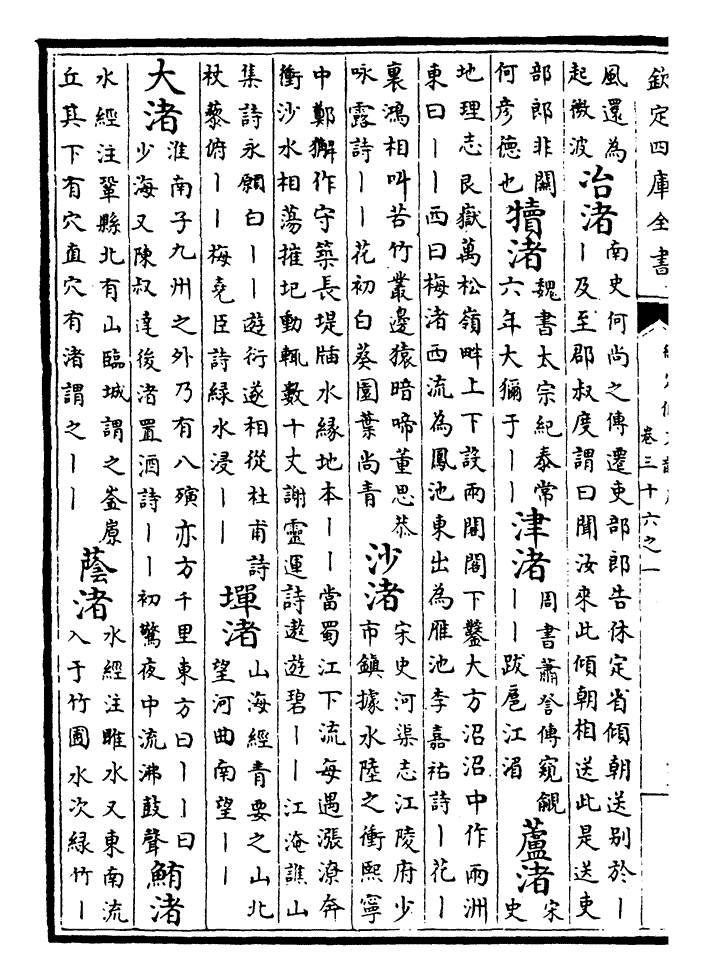 欽定四庫全書
卷三十六之一
風還為
起微波
冶渚
南史何尚之傳遷吏部郎告休定省傾朝送别於丨
丨及至郡叔度謂曰聞汝來此傾朝相送此是送吏
部郎非關
何彦德也
犢渚
魏書太宗紀泰常
六年大獮于丨丨
津渚
周書蕭詧傳窺覦
丨丨跋扈江湄
蘆渚
宋
史
地理志艮嶽萬松嶺畔上下設兩關關下鑿大方沼沼中作兩洲
東曰丨丨西曰梅渚西流為鳳池東出為雁池李嘉祐詩丨花丨
裏鴻相叫苦竹叢邊猿暗啼董思恭
咏露詩丨丨花初白葵園葉尚青
沙渚
宋史河渠志江陵府少
市鎮據水陸之衝熙寧
中鄭獬作守築長堤牐水緣地本丨丨當蜀江下流每遇漲潦奔
衝沙水相蕩摧圮動輒數十丈謝靈運詩遨遊碧丨丨江淹譙山
集詩永願白丨丨遊衍遂相從杜甫詩
杖藜俯丨丨梅堯臣詩緑水浸丨丨
墠渚
山海經青要之山北
望河曲南望丨丨
大渚
淮南子九州之外乃有八殥亦方千里東方曰丨丨曰
少海又陳叔達後渚置酒詩丨丨初驚夜中流沸鼓聲
鮪渚
水經注鞏縣北有山臨城謂之崟原
丘其下有穴直穴有渚謂之丨丨
蔭渚
水經注睢水又東南流
入于竹圃水次緑竹丨